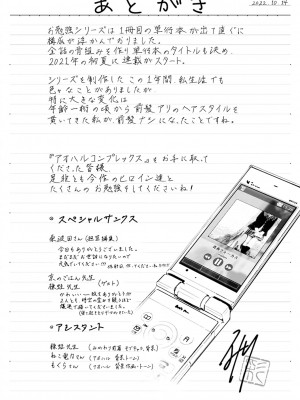 あとがき
2022. 10. 14
お勉強シリーズは1冊目の単行本が出て直ぐに
構成が浮かんでおりました。
全話の骨組みを作り単行本のタイトルも決め、
2021年の初夏に連載がスタート。
シリーズを制作したこの1年間、私生活でも
色々なことがありましたが
特に大きな変化は
年齢一桁の頃から前髪アリのヘアスタイルを
貫いてきた私が、前髪ナシになったことですね。
『アオハルコンプレックス』をお手に取って
くださった皆様、
是非とも今作のヒロイン達と
たくさんのお勉強をしてくださいね!
* スペシャルサンクス
(担当編集)
今回もありがとうございました。
まだまだお世話になりたいので
京のごはん先生
(ゲスト)
* アシスタント
ねこ電力さん
もぐらさん